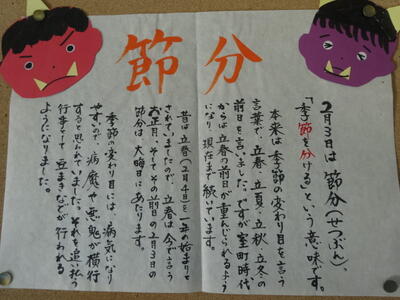 節分
2月3日は節分(せつぶん)、
「季節を分ける」という意味です。
本来は季節の変わり目を言う
言葉で、立春、立夏、立秋、立冬の
前日を言いました。ですが室町時代
からは立春の前日が重んじられるよう
になり、現在まで続いています。
昔は立春(2月4日)を一年の始まりと
されていましたので、立春は今で言う
お正月、そしてその前日の2月3日の
節分は大晦日にあたります。
季節の変わり目には、病気になり
やすいので、病魔や悪鬼が横行
すると思われていました。それを追い払う
行事として豆まきなどが行われる
ようになりました。